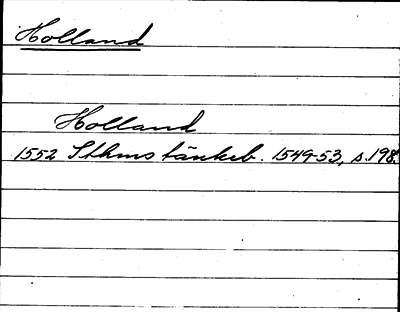 Holland
Holland
1552 Sthms tänkeb. 1549-53, s. 198.